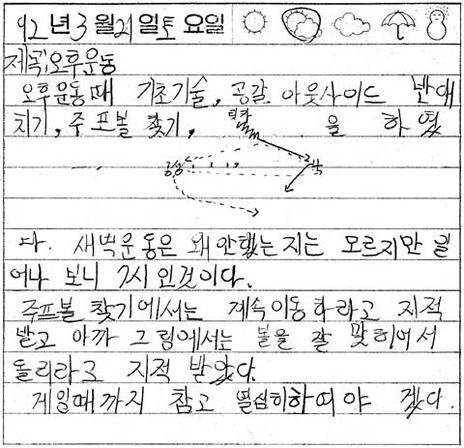 92년 3월 21일 토 요일
제목: 오후운동
오후운동때 기초기술, 공갈. 아웃사이드 반대
치기, 루프볼 찾기, 을 하였
다. 새벽운동은 왜 안했는지는 모르지만 일
어나 보니 7시 인것이다.
루프볼 찾기에서는 계속이동하라고 지적
받고 아까 그림에서는 볼을 잘 맞히어서
돌리라고 지적 받았다.
게임때까지 참고 열심히하여야 겠다.